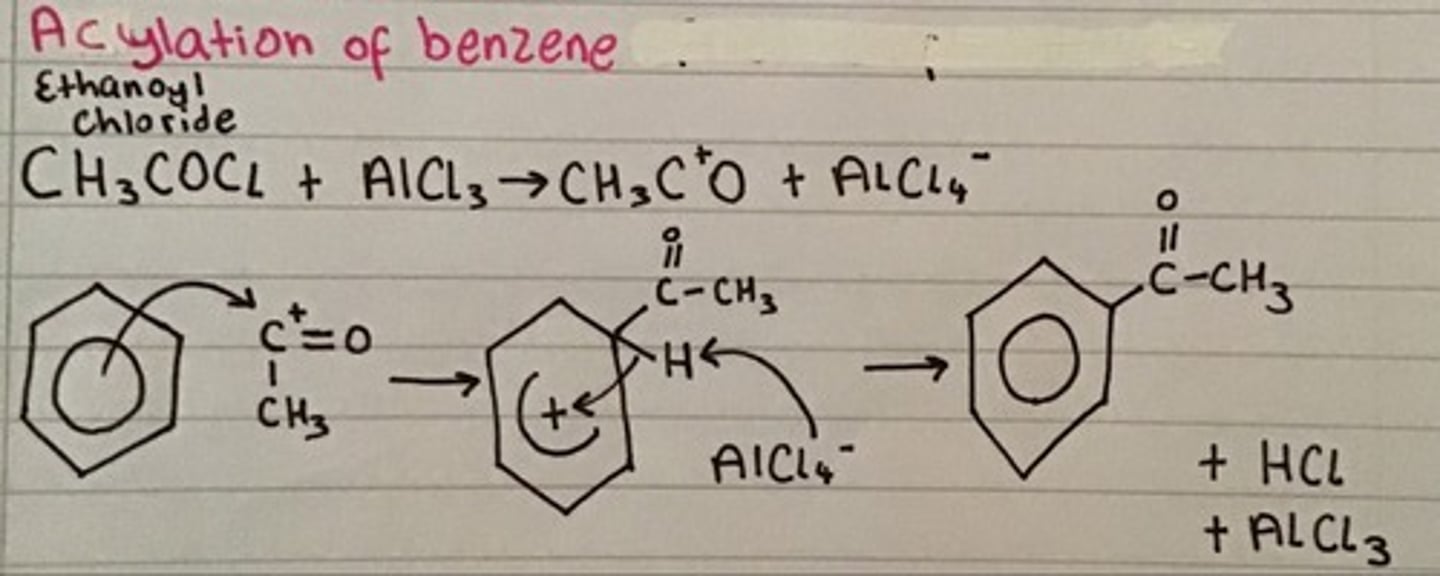 Acylation of benzene
Ethanoyl
chloride
CH₃COCl + AlCl₃ → CH₃C⁺O + AlCl₄⁻
O
||
C-CH₃
H
C⁺=O
|
CH₃
+
AlCl₄⁻
O
||
C-CH₃
+ HCl
+ AlCl₃